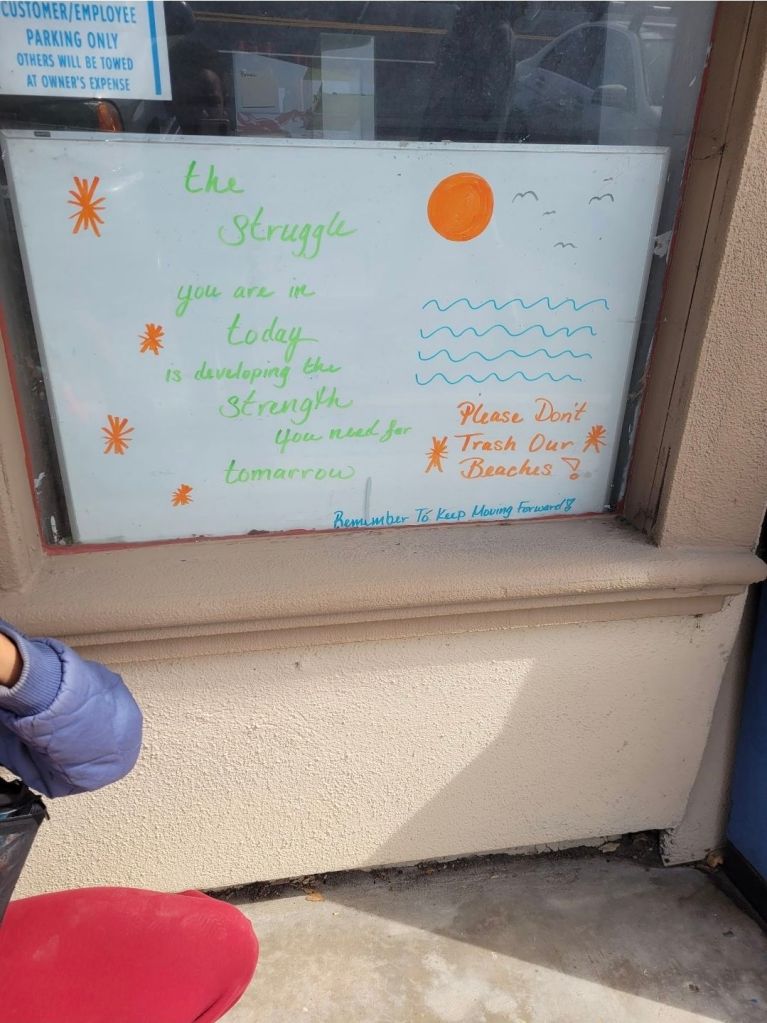 CUSTOMER/EMPLOYEE
PARKING ONLY
OTHERS WILL BE TOWED
AT OWNER'S EXPENSE
the
struggle
you are in
today
is developing the
strength
you need for
tomarrow
Please Don't
Trash Our
Beaches!
Remember To Keep Moving Forward!